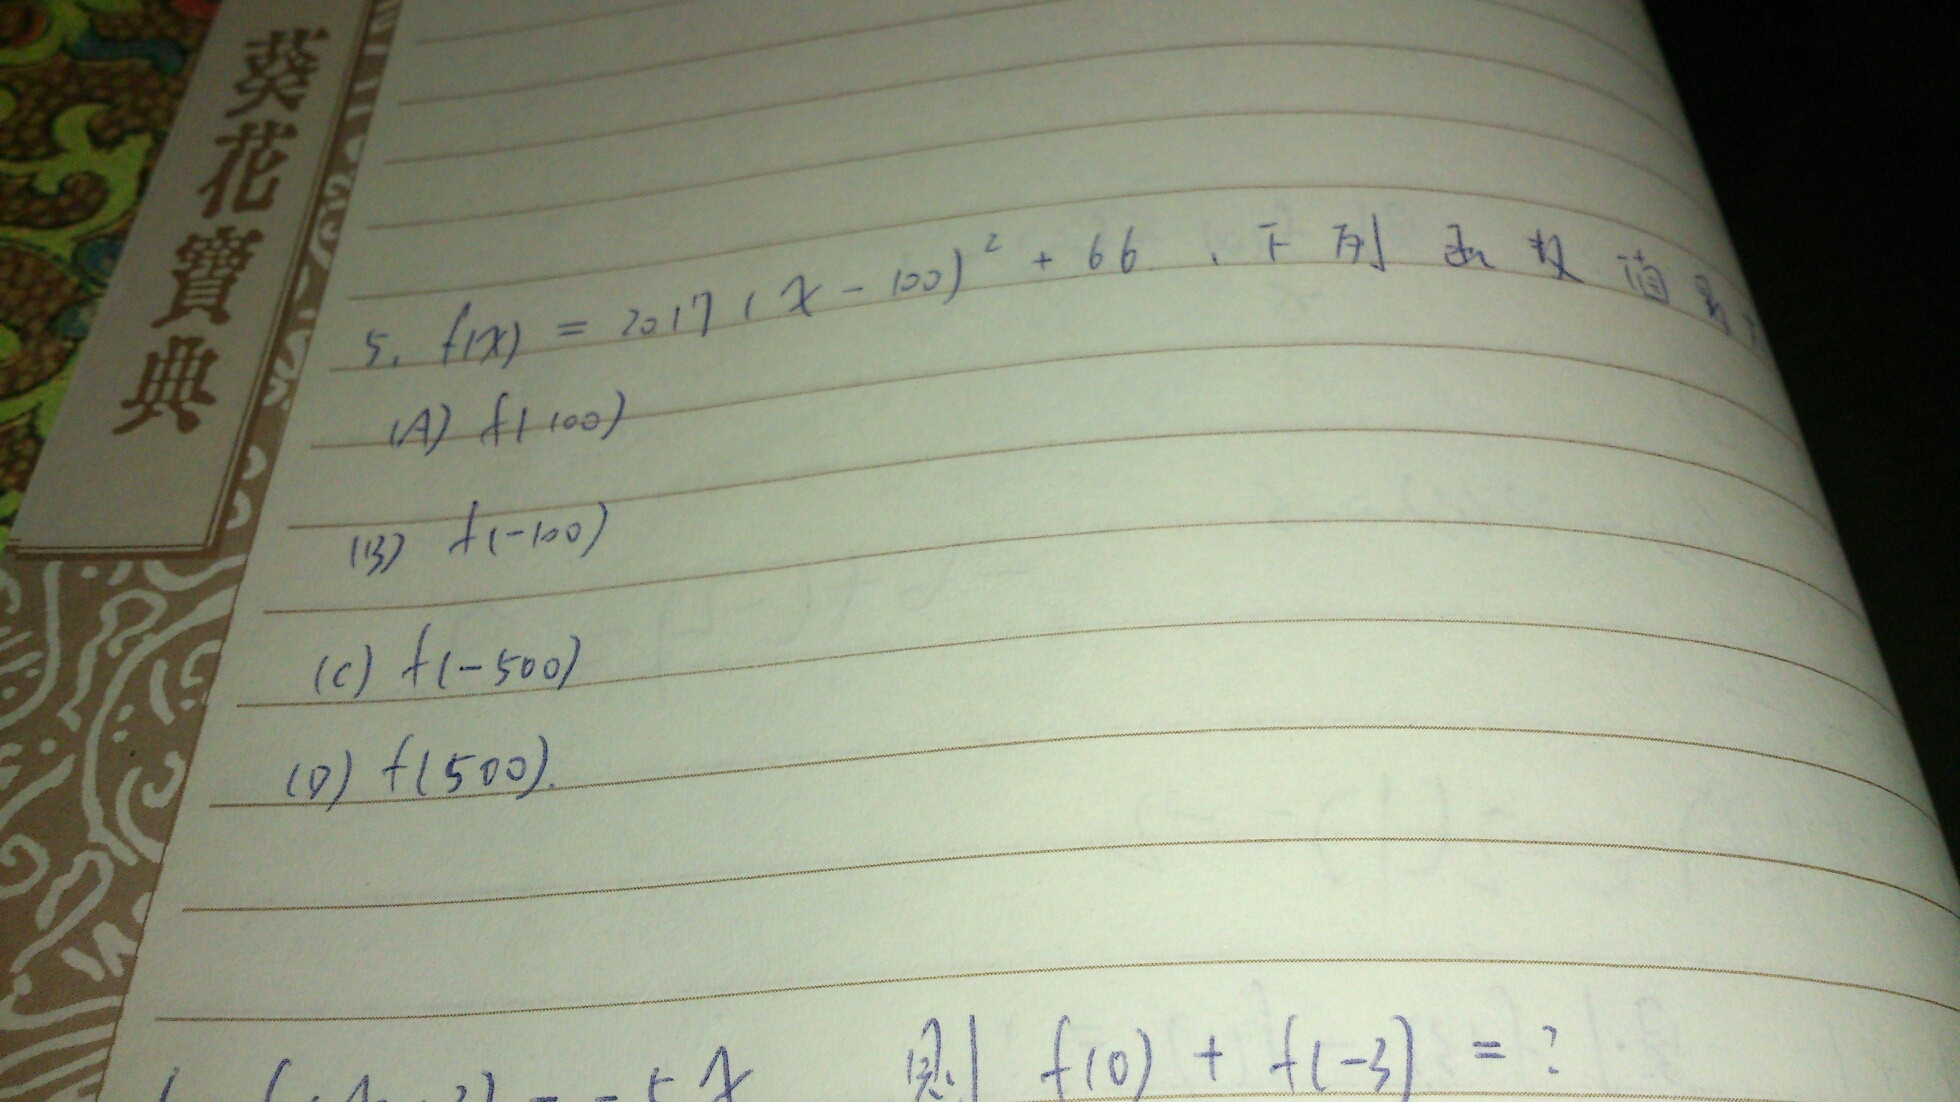 葵花寶典
5. f(x) = 2017(x - 100)² + 66, 下列函数值最
(A) f(100)
(B) f(-100)
(C) f(-500)
(D) f(500).
= -5x 则 f(0) + f(-3) = ?